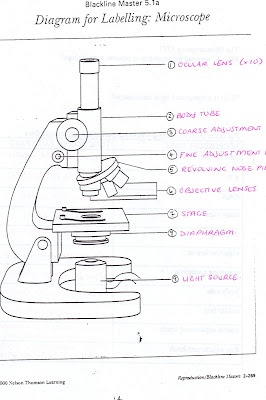 Blackline Master 5.1a
Diagram for Labelling: Microscope
① OCULAR LENS (x10)
② BODY TUBE
③ COARSE ADJUSTMENT
④ FINE ADJUSTMENT
⑤ REVOLVING NOSE
⑥ OBJECTIVE LENSES
⑦ STAGE
⑧ DIAPHRAGM
⑨ LIGHT SOURCE
Nelson Thomson Learning
Reproduction/Blackline Masters